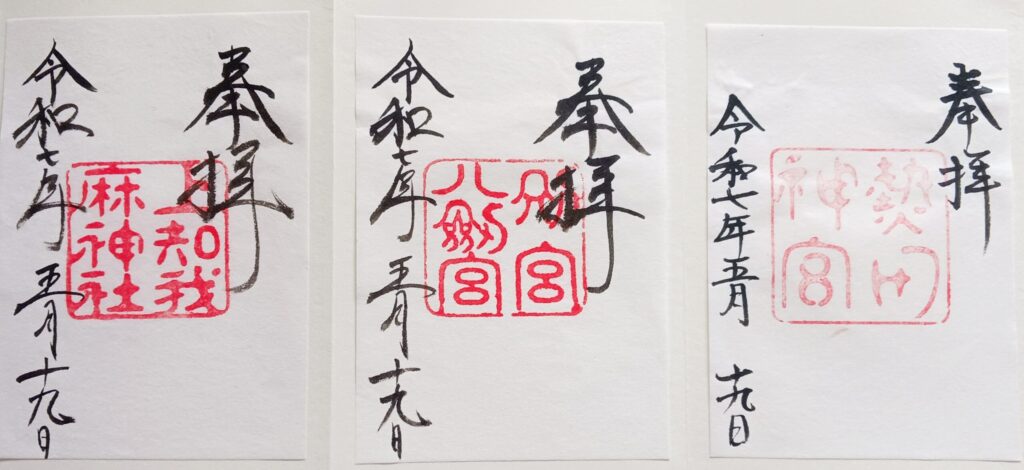 奉拝
上知我
麻神社
令和七年五月十九日
奉拝
別宮
八劔宮
令和七年五月十九日
奉拝
熱田
神宮
令和七年五月十九日